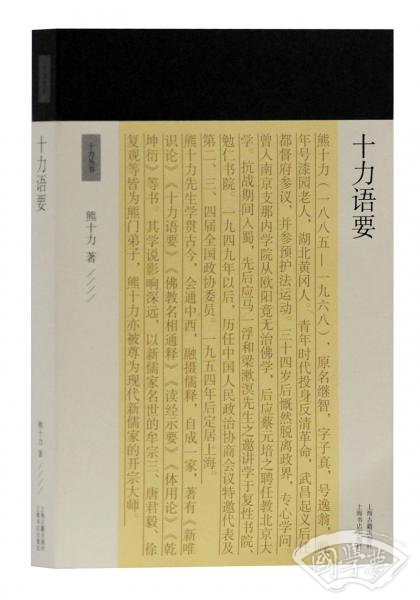 十力语要
熊十力（一八八五—一九六八），原名继智，字子真，号逸翁，
年号漆园老人，湖北黄冈人。青年时代投身反清革命，武昌起义后任
都督府参议，并参预护法运动。三十四岁后慨然脱离政界，专心学问
曾入南京支那内学院从欧阳竟无治佛学，后应蔡元培之聘任教北京大
学。抗战期间入蜀，先后应马一浮和梁漱溟先生之邀讲学于复性书院、
勉仁书院。一九四九年以后，历任中国人民政治协商会议特邀代表及
第二、三、四届全国政协委员。一九五四年后定居上海。
熊十力先生学贯古今，会通中西，融摄儒释，自成一家，著有《新唯
识论》《十力语要》《佛教名相通释》《读经示要》《体用论》《乾
坤衍》等书，其学说影响深远，以新儒家名世的牟宗三、唐君毅、徐
复观等皆为熊门弟子，熊十力亦被尊为现代新儒家的开宗大师。
上海古籍出版社
上海书店出版社
十力丛书
熊十力 著
十力语要
熊十力 著
國學夢